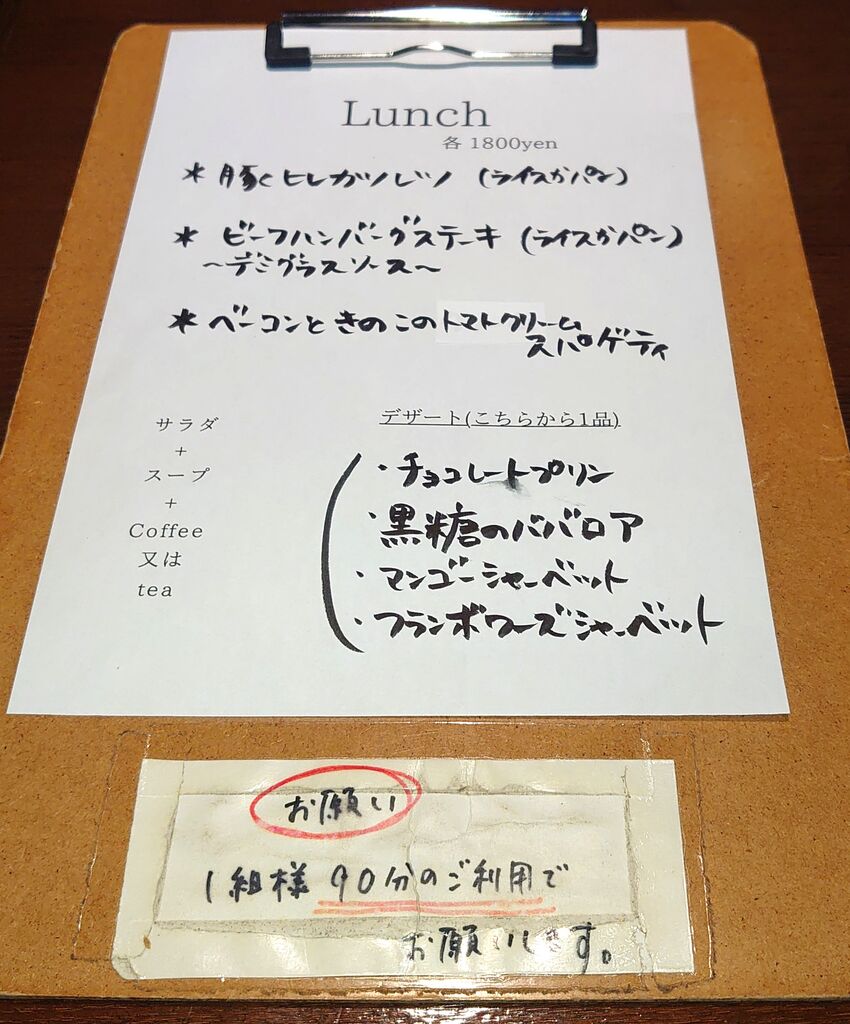 Lunch
各 1800yen
* 豚ヒレカツレツ (ライスかパン)
* ビーフハンバーグステーキ (ライスかパン)
～デミグラスソース～
* ベーコンときのこのトマトクリーム
スパゲティ
サラダ
+
スープ
+
Coffee
又は
tea
デザート(こちらから1品)
・チョコレートプリン
・黒糖のババロア
・マンゴーシャーベット
・フランボワーズシャーベット
お願い
1組様 90分のご利用で
お願いします。